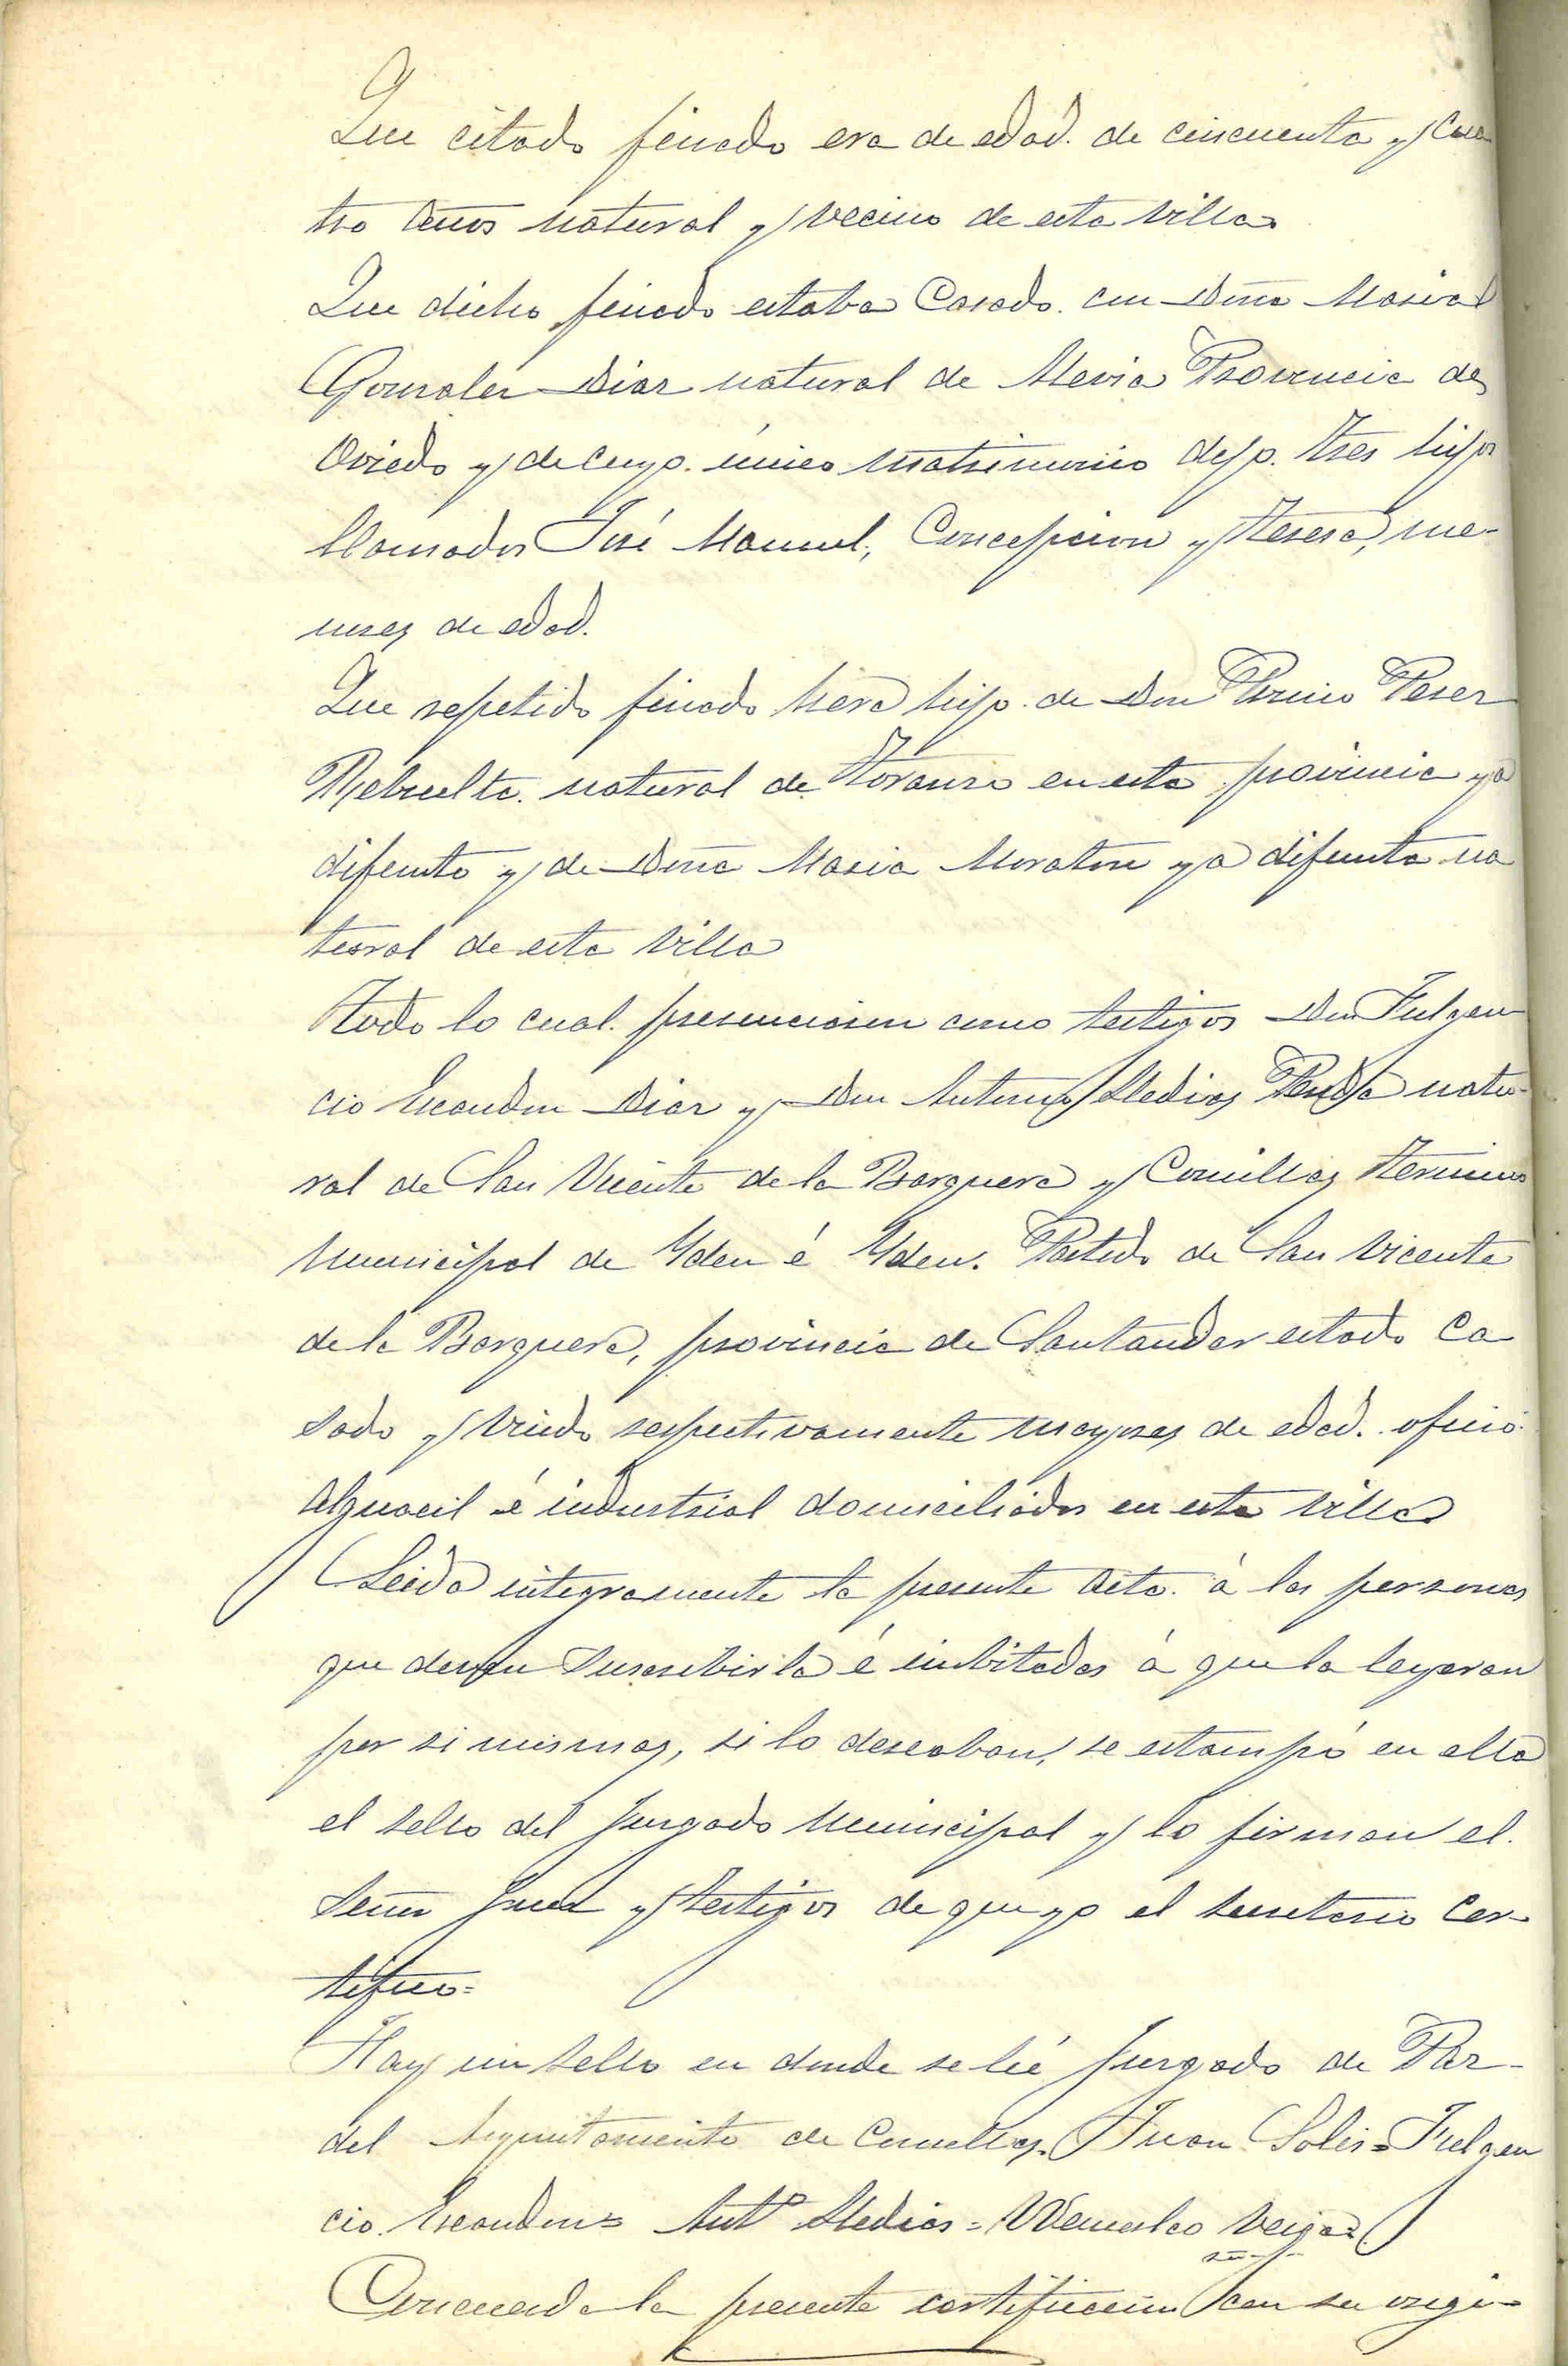 Que citado finado era de edad de cincuenta y cua
tro años natural y vecino de esta villa
Que dicho finado estaba Casado con Doña Maria
Gonzalez Diaz natural de Mevia Provincia de
Oviedo y de cuyo único matrimonio dejo tres hijos
llamados José Manuel, Concepcion y Teresa, me-
nores de edad.
Que repetido finado hera hijo de Don Perez
Rebuelta natural de Toranzo en esta provincia ya
difunto y de Doña Maria Moraton ya difunta na
tural de esta Villa
Todo lo cual presenciaron como testigos Don Fulgen
cio Escandon Diaz y Don Antonio natu-
ral de San Vicente de la Barquera y Comillas Termino
Municipal de Yden é Yden. Partido de San Vicente
de la Barquera, provincia de Santander estado Ca
sado y Viudo respectivamente mayores de edad. oficio
Alguacil é industrial domiciliados en esta villa
Leida integramente la presente acta á las personas
que deven suscribirla é inbitadas á que la leyeran
por si mismas, si lo deseaban, se estampó en ella
el sello del Juzgado Municipal y lo firman el
Señor Juez y testigos de que yo el secretario Cer-
tifico=
Hay un sello en donde se leé Juzgado de Paz
del Ayuntamiento de Comillas. Juan Solis=Fulgen
cio Escandon= Antº = Wenceslao Veiga=
Concuerda la presente certificacion con su origi-